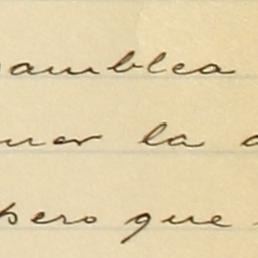 samblea
mer la
pero que